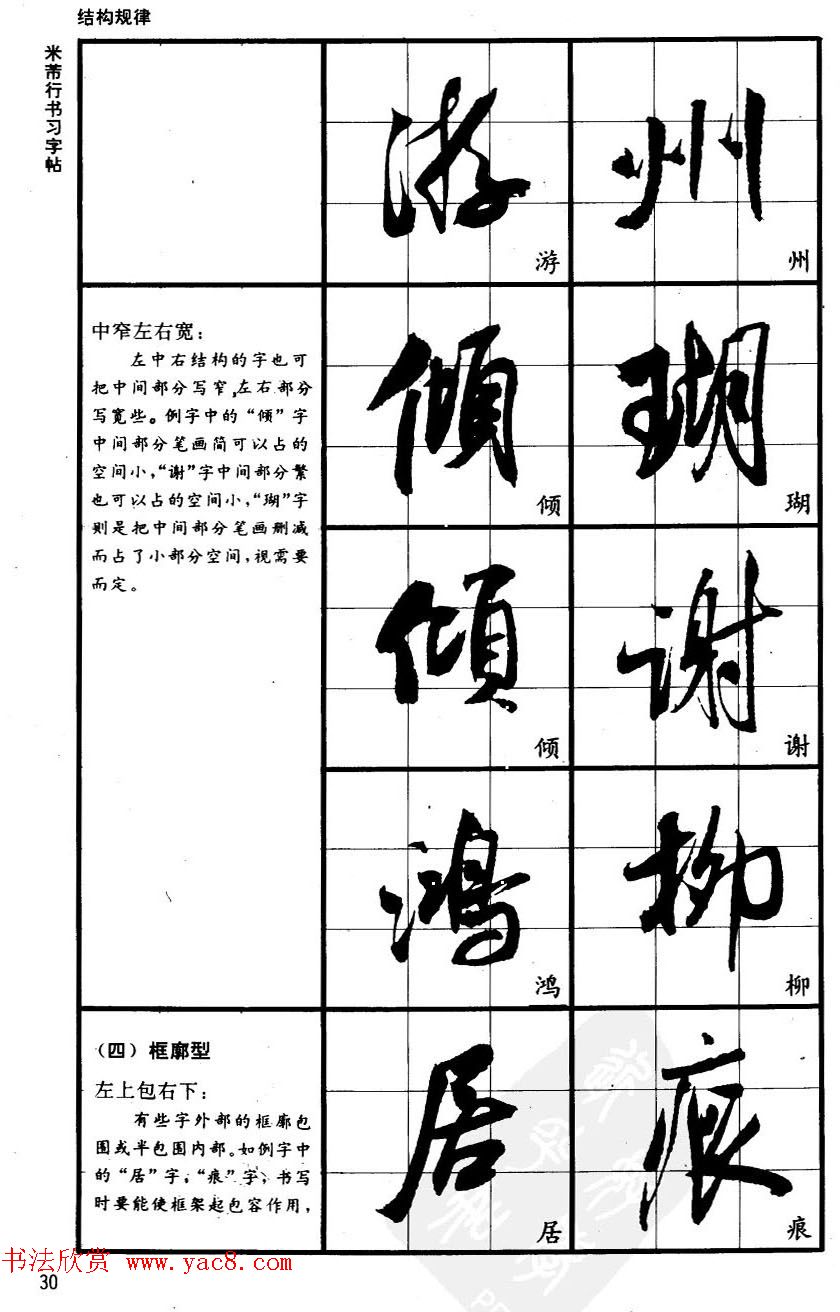 结构规律
米芾行书习字帖
游 州
游 州
中窄左右宽：
左中右结构的字也可
把中间部分写窄，左右部分
写宽些。例字中的“倾”字
中间部分笔画简可以占的
空间小，“谢”字中间部分繁
也可以占的空间小，“瑚”字
则是把中间部分笔画删减
而占了小部分空间，视需要
而定。
傾 瑚
倾 瑚
傾 谢
倾 谢
鴻 柳
鸿 柳
（四）框廓型
左上包右下：
有些字外部的框廓包
围或半包围内部。如例字中
的“居”字，“痕”字，书写
时要能使框架起包容作用，
居 痕
居 痕
书法欣赏 www.yac8.com
30